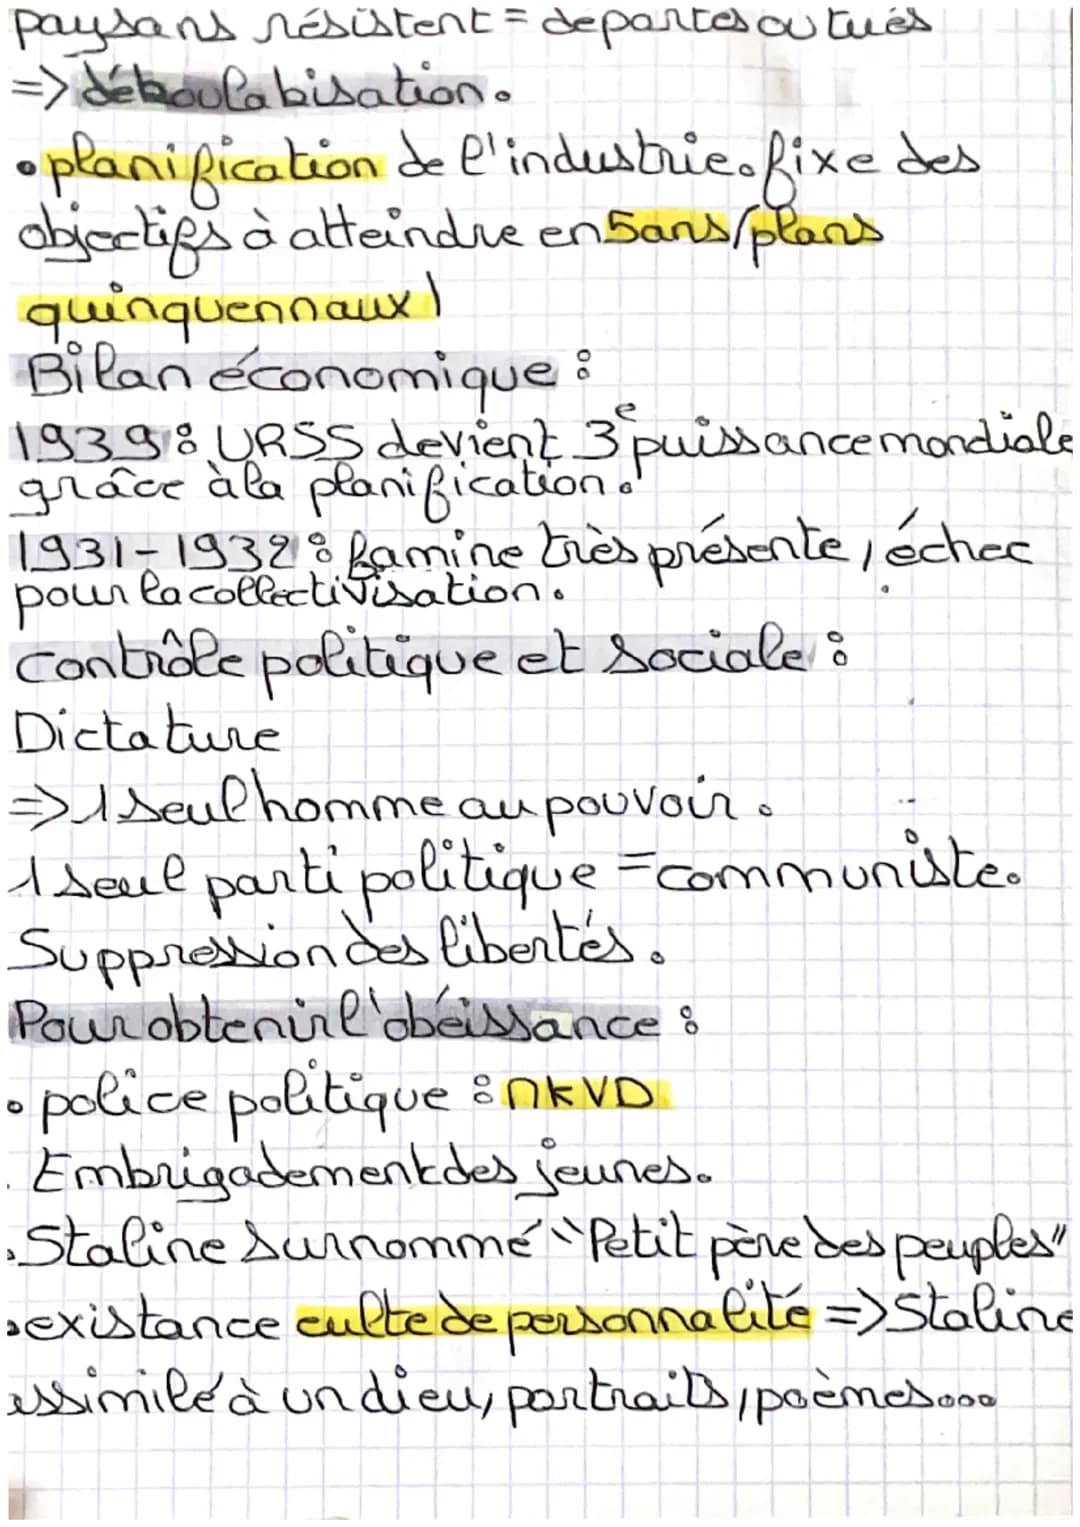 paysans résistent = départés ou tués
=> dékoulabisation.
• planification de l'industrie. fixe des
objectifs à atteindre en 5 ans/plans
quinquennaux)
Bilan économique :
1939 : URSS devient 3e puissance mondiale
grâce à la planification.
1931-1932 : famine très présente, échec
pour la collectivisation.
contrôle politique et sociale :
Dictature
=> 1 seul homme au pouvoir.
1 seul parti politique = communiste.
Suppression des libertés.
Pour obtenir l'obéissance :
• police politique : NKVD
. Embrigadement des jeunes.
. Staline surnommé "Petit père des peuples"
• existance culte de personnalité => Staline
assimilé à un dieu, portraits, poèmes...